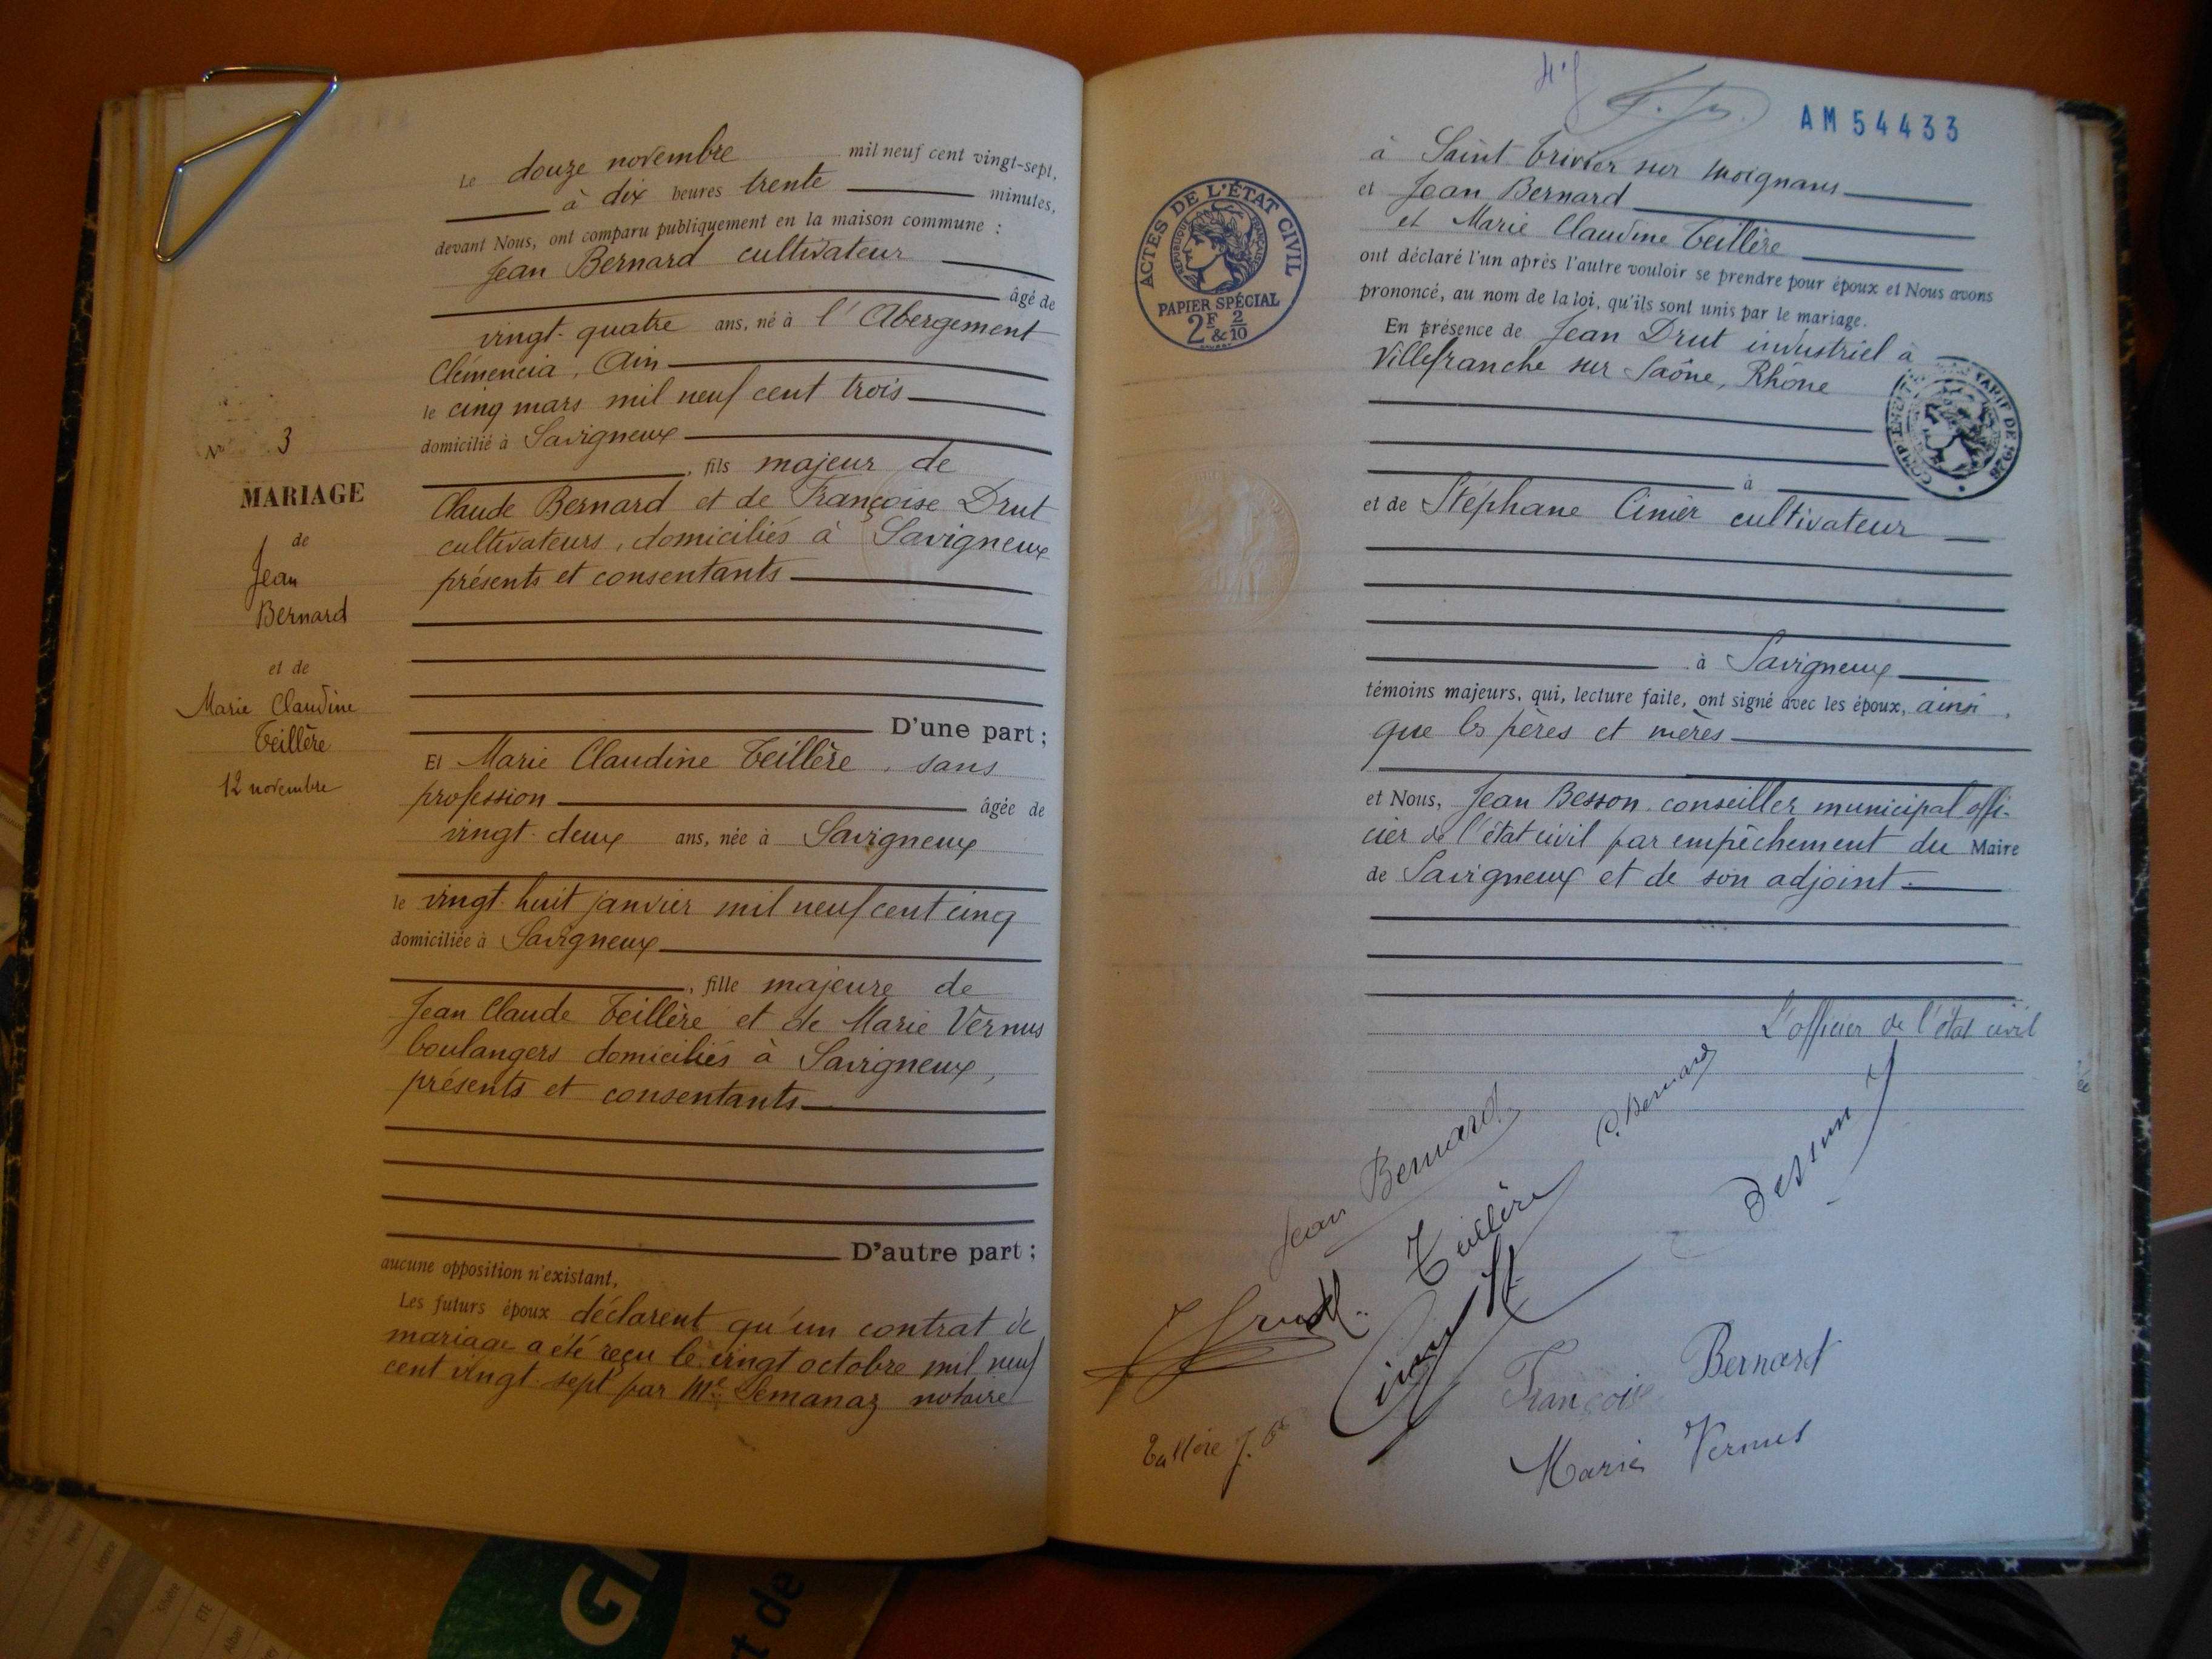 N° 3
MARIAGE
de
Jean
Bernard
et de
Marie Claudine
Teillère
12 novembre
Le douze novembre mil neuf cent vingt-sept,
à dix heures trente minutes,
devant Nous, ont comparu publiquement en la maison commune :
Jean Bernard cultivateur
âgé de
vingt-quatre ans, né à l'Abergement
Clémencia, Ain
le cinq mars mil neuf cent trois
domicilié à Savigneux
, fils majeur de
Claude Bernard et de Françoise Drut
cultivateurs, domiciliés à Savigneux
présents et consentants
D'une part ;
Et Marie Claudine Teillère, sans
profession âgée de
vingt-deux ans, née à Savigneux
le vingt-huit janvier mil neuf cent cinq
domiciliée à Savigneux
, fille majeure de
Jean Claude Teillère et de Marie Vernus
boulangers domiciliés à Savigneux,
présents et consentants
D'autre part ;
aucune opposition n'existant,
Les futurs époux déclarent qu'un contrat de
mariage a été reçu le vingt octobre mil neuf
cent vingt-sept par Me Semanaz notaire
AM 54433
ACTES DE L'ÉTAT CIVIL
RÉPUBLIQUE FRANÇAISE
PAPIER SPÉCIAL
2F & 2/10
à Saint Trivier sur Moignans
et Jean Bernard
et Marie Claudine Teillère
ont déclaré l'un après l'autre vouloir se prendre pour époux et Nous avons
prononcé, au nom de la loi, qu'ils sont unis par le mariage.
En présence de Jean Drut industriel à
Villefranche sur Saône, Rhône
TARIF DE
à
et de Stéphane Cinier cultivateur
à Savigneux
témoins majeurs, qui, lecture faite, ont signé avec les époux, ainsi
que les pères et mères
et Nous, Jean Besson conseiller municipal offi-
cier de l'état civil par empêchement du Maire
de Savigneux et de son adjoint.
L'officier de l'état civil
Jean Bernard
C. Bernard
Besson
Teillère
Françoise Bernard
Marie Vernus